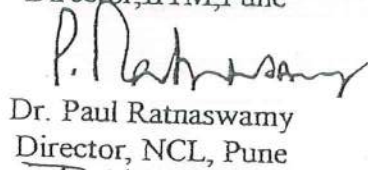 P. Ratnasamy
Dr. Paul Ratnaswamy
Director, NCL, Pune